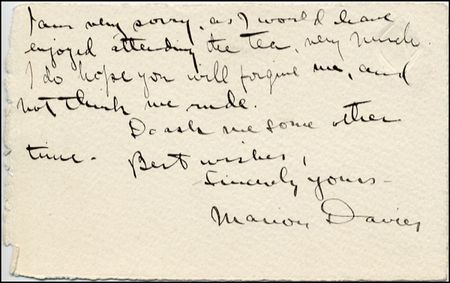 I am very sorry, as I would have
enjoyed attending the tea, very much.
I do hope you will forgive me, and
not think me rude.
Do ask me some other
time. Best wishes,
Sincerely yours -
Marion Davies